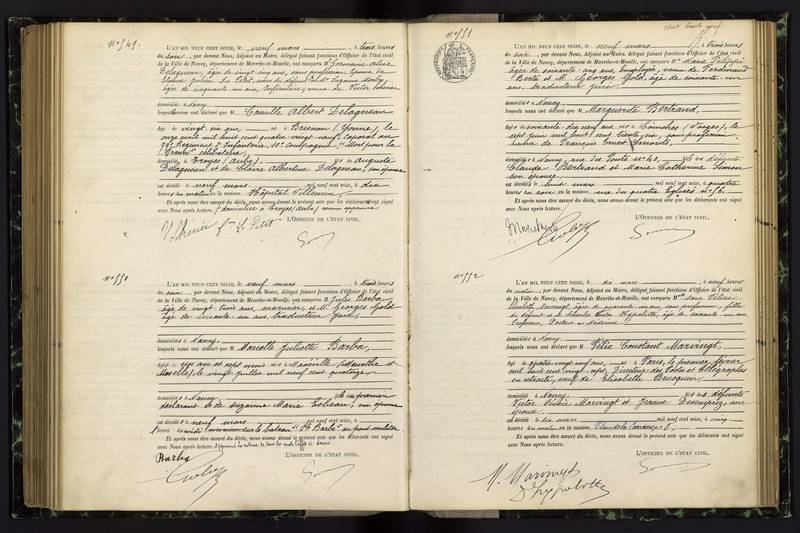 N° 549.
L'AN MIL NEUF CENT SEIZE, le neuf mars, à trois heures
du soir, par devant Nous, Adjoint au Maire, délégué faisant fonctions d'Officier de l'état civil
de la Ville de Nancy, département de Meurthe-et-Moselle, ont comparu M Germaine
Delagneau, âgée de vingt ans, sans profession, épouse de
domicilié à Nancy
lesquels nous ont déclaré que M Camille Albert Delagneau
âgé de vingt six ans, né à Brienon (Yonne), le
onze avril mil huit cent quatre vingt neuf, caporal au
Régiment d'Infanterie, 10e Compagnie, "Mort pour la
France", célibataire,
domicilié à Troyes (Aube), fils de Auguste
Delagneau et de Claire Albertine Delagneau, son épouse
est décédé le neuf mars mil neuf cent seize, à dix
heures du matin en la maison Hôpital Villemin
Et après nous être assuré du décès, nous avons dressé le présent acte que les déclarants ont signé
avec Nous après lecture. (domicilié à Troyes (Aube)
L'OFFICIER DE L'ÉTAT CIVIL,
N° 550
L'AN MIL NEUF CENT SEIZE, le neuf mars, à trois heures
du soir, par devant Nous, Adjoint au Maire, délégué faisant fonctions d'Officier de l'état civil
de la Ville de Nancy, département de Meurthe-et-Moselle, ont comparu M Jules Barba
âgé de vingt trois ans, marinier, et M. Georges Gold
âgé de soixante un ans, traducteur juré,
domicilié à Nancy
lesquels nous ont déclaré que M Marcelle Juliette Barba,
âgé de un an et sept mois né à Maxéville (Meurthe et
Moselle), le vingt juillet mil neuf cent quatorze,
domicilié à Nancy fils du premier
déclarant et de Suzanne Marie, son épouse
est décédé le neuf mars mil neuf cent seize, à
heures midi sur le bateau "Ste Barbe" au
Et après nous être assuré du décès, nous avons dressé le présent acte que les déclarants ont signé
avec Nous après lecture.
Barba
L'OFFICIER DE L'ÉTAT CIVIL,
N° 551
L'AN MIL NEUF CENT SEIZE, le neuf mars, à trois heures
du soir, par devant Nous, Adjoint au Maire, délégué faisant fonctions d'Officier de l'état civil
de la Ville de Nancy, département de Meurthe-et-Moselle, ont comparu Me Marie
âgée de soixante ans, employée, veuve de Ferdinand
et M. Georges Gold, âgé de soixante un
ans, traducteur juré
domicilié à Nancy
lesquels nous ont déclaré que M Marguerite Bertrand,
âgé de soixante dix neuf ans né à Coinches (Vosges), le
sept juin mil huit cent trente six, sans profession,
veuve de François Ernest
domicilié à Nancy, rue N° 40, fille des défunts
Claude Bertrand et Marie Catherine Simon
son épouse
est décédé le huit mars mil neuf cent seize, à quatre
heures du soir en la maison rue des quatre Eglises N° 6.
Et après nous être assuré du décès, nous avons dressé le présent acte que les déclarants ont signé
avec Nous après lecture.
L'OFFICIER DE L'ÉTAT CIVIL,
N° 552
L'AN MIL NEUF CENT SEIZE, le dix mars, à neuf heures
du matin, par devant Nous, Adjoint au Maire, délégué faisant fonctions d'Officier de l'état civil
de la Ville de Nancy, département de Meurthe-et-Moselle, ont comparu Melle Marie Félicie
Elisabeth Marvingt, âgée de quarante ans, sans profession, fille
du défunt et M. Charles Victor Hyppolitte, âgé de soixante un ans
Professeur, Docteur en Médecine
domicilié à Nancy
lesquels nous ont déclaré que M Félix Constant Marvingt,
âgé de quatre vingt neuf ans, né à Paris, le premier février
mil huit cent vingt sept, Directeur des Postes et Télégraphes
en retraite, veuf de Elisabeth Brusquin,
domicilié à Nancy fils des défunts
Victor Marvingt et Jeanne, son
épouse
est décédé le dix mars mil neuf cent seize, à cinq
heures du matin en la maison Place de la Carrière, 8
Et après nous être assuré du décès, nous avons dressé le présent acte que les déclarants ont signé
avec Nous après lecture.
L'OFFICIER DE L'ÉTAT CIVIL,
M. Marvingt